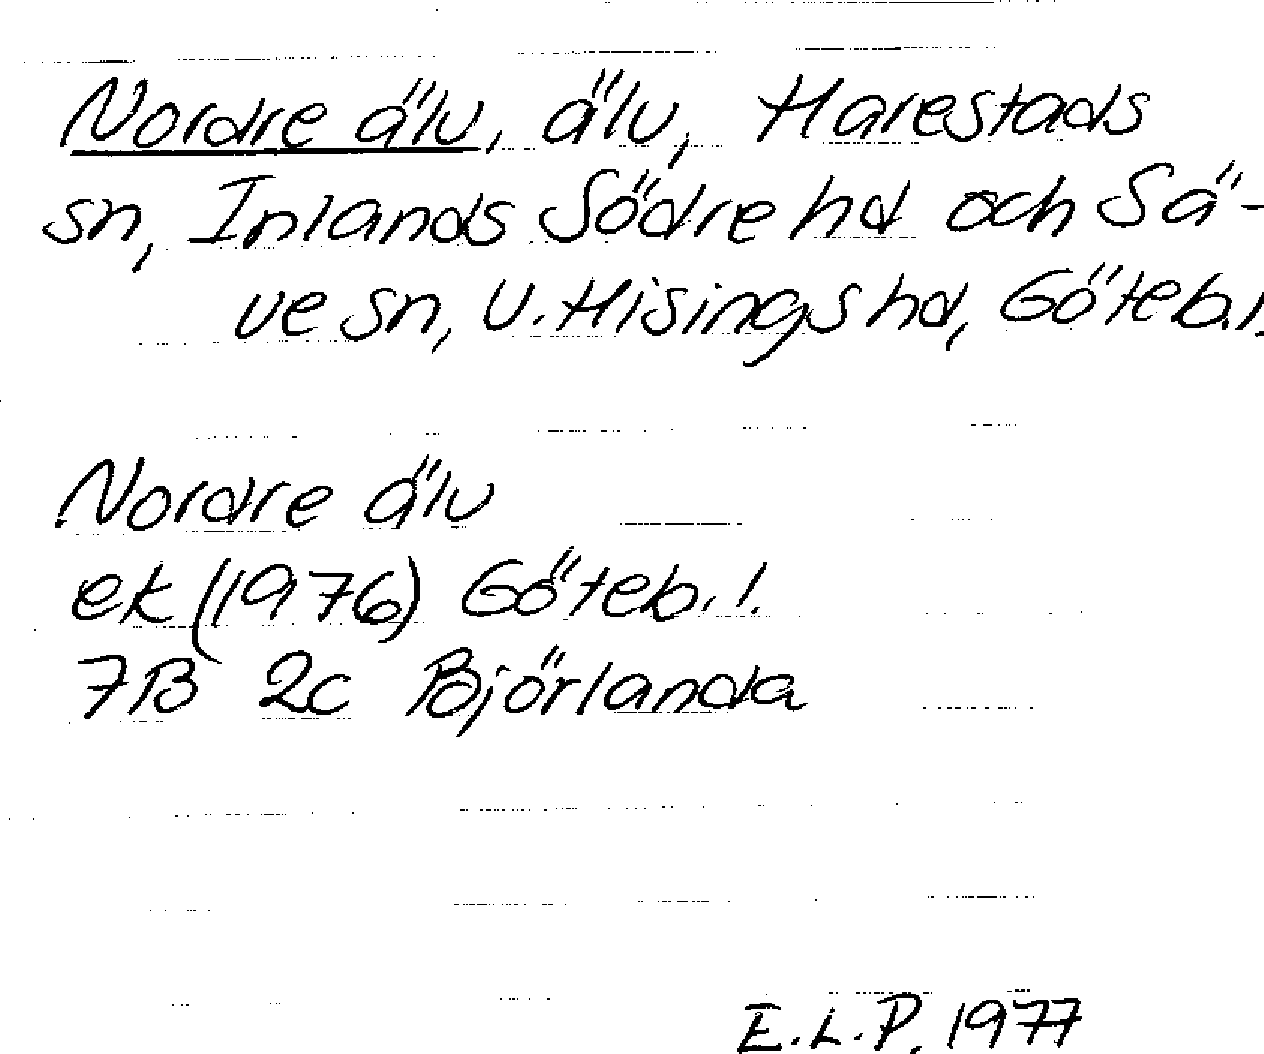 Nordre älv, älv, Harestads
sn, Inlands Södre hd och Sä-
ve sn, V. Hisings hd, Göteb. l.
Nordre älv
ek (1976) Göteb. l.
7B 2c Björlanda
E.L.P. 1977